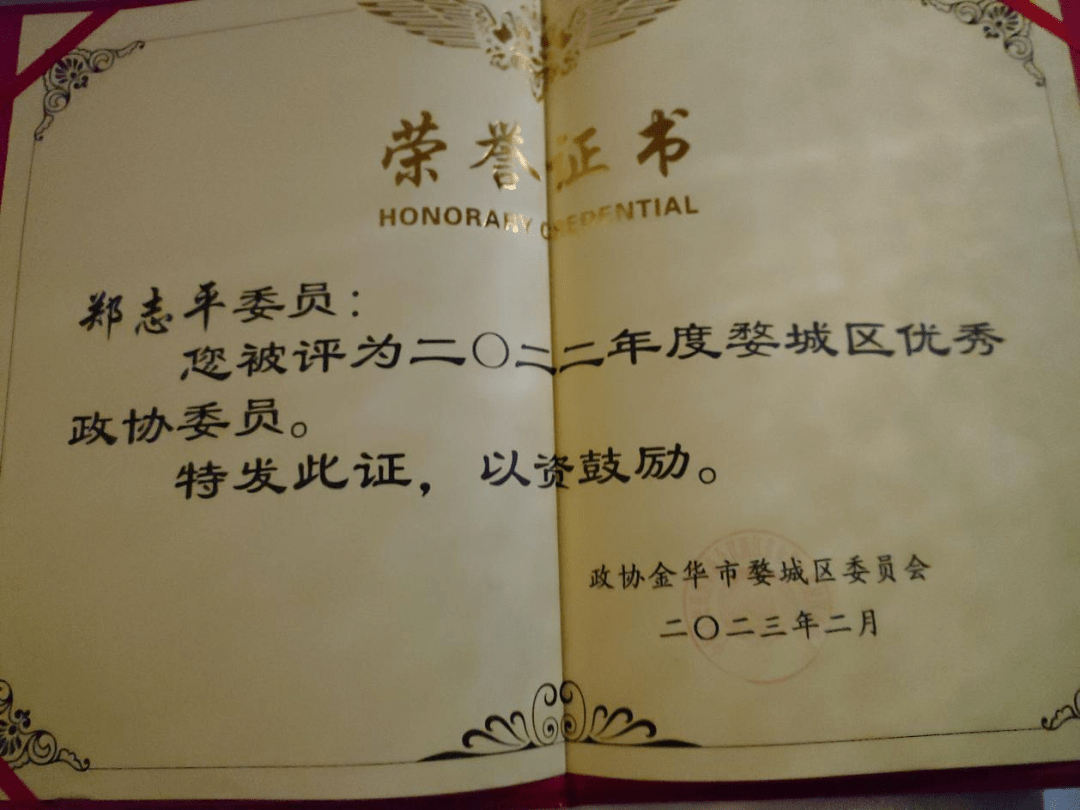 荣誉证书
HONORARY CREDENTIAL
郑志平委员：
您被评为二〇二二年度婺城区优秀
政协委员。
特发此证，以资鼓励。
政协金华市婺城区委员会
二〇二三年二月